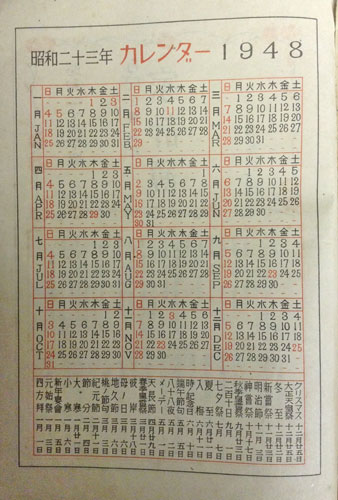 昭和二十三年 カレンダー 1948
一月 JAN
日月火水木金土
1 2 3
4 5 6 7 8 9 10
11 12 13 14 15 16 17
18 19 20 21 22 23 24
25 26 27 28 29 30 31
二月 FEB
日月火水木金土
1 2 3 4 5 6 7
8 9 10 11 12 13 14
15 16 17 18 19 20 21
22 23 24 25 26 27 28
29
三月 MAR
日月火水木金土
1 2 3 4 5 6
7 8 9 10 11 12 13
14 15 16 17 18 19 20
21 22 23 24 25 26 27
28 29 30 31
四月 APR
日月火水木金土
1 2 3
4 5 6 7 8 9 10
11 12 13 14 15 16 17
18 19 20 21 22 23 24
25 26 27 28 29 30
五月 MAY
日月火水木金土
1
2 3 4 5 6 7 8
9 10 11 12 13 14 15
16 17 18 19 20 21 22
23 24 25 26 27 28 29
30 31
六月 JUN
日月火水木金土
1 2 3 4 5
6 7 8 9 10 11 12
13 14 15 16 17 18 19
20 21 22 23 24 25 26
27 28 29 30
七月 JUL
日月火水木金土
1 2 3
4 5 6 7 8 9 10
11 12 13 14 15 16 17
18 19 20 21 22 23 24
25 26 27 28 29 30 31
八月 AUG
日月火水木金土
1 2 3 4 5 6 7
8 9 10 11 12 13 14
15 16 17 18 19 20 21
22 23 24 25 26 27 28
29 30 31
九月 SEP
日月火水木金土
1 2 3 4
5 6 7 8 9 10 11
12 13 14 15 16 17 18
19 20 21 22 23 24 25
26 27 28 29 30
十月 OCT
日月火水木金土
1 2
3 4 5 6 7 8 9
10 11 12 13 14 15 16
17 18 19 20 21 22 23
24 25 26 27 28 29 30
31
十一月 NOV
日月火水木金土
1 2 3 4 5 6
7 8 9 10 11 12 13
14 15 16 17 18 19 20
21 22 23 24 25 26 27
28 29 30
十二月 DEC
日月火水木金土
1 2 3 4
5 6 7 8 9 10 11
12 13 14 15 16 17 18
19 20 21 22 23 24 25
26 27 28 29 30 31
四方拝 一月一日
元始祭 一月三日
新年宴会 一月五日
小寒 一月六日
大寒
節分
紀元節 二月十一日
桃ノ節句 三月三日
地久節 三月六日
母
彼岸
春季皇霊祭
天長節 四月廿九日
メーデー 五月一日
八十八夜
端午節句 五月五日
時ノ記念日 六月十日
入梅
夏至
七夕祭 七月七日
二百十日
秋季皇霊祭
神嘗祭
明治節 十一月三日
新嘗祭
冬至
大正天皇祭
クリスマス 十二月廿五日